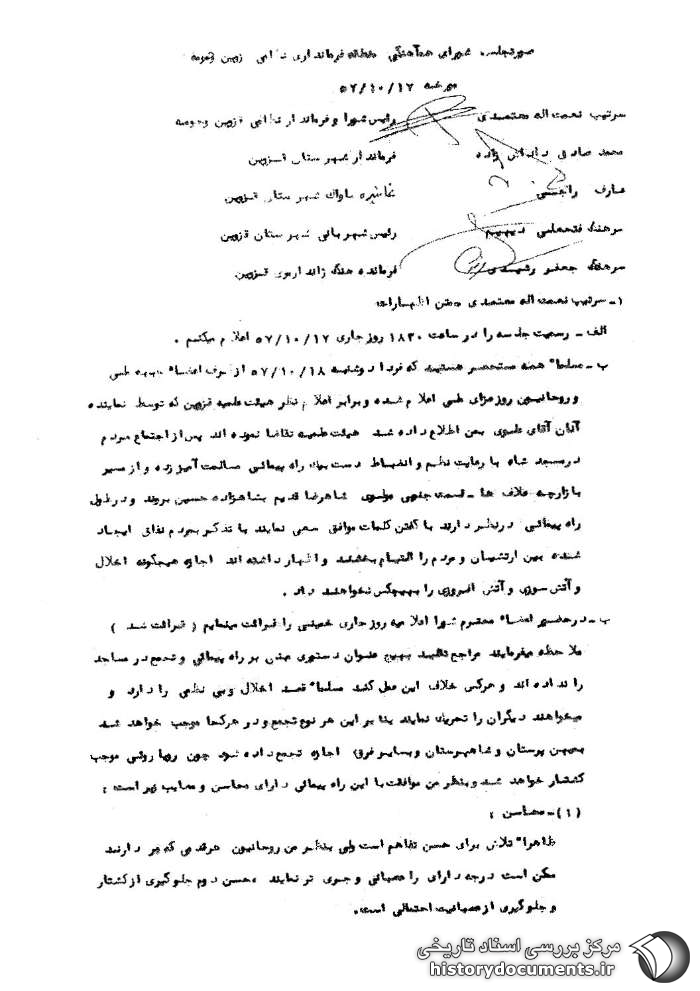 صورتجلسه شورای هماهنگی منطقه فرمانداری نظامی قزوین وحومه
مورخه ۵۷/۱۰/۱۷
سرتیپ نعمت اله معتمدی رئیس شورا و فرماندار نظامی قزوین وحومه
محمد صادق زاده فرماندار شهرستان قزوین
عارف رانجبش نماینده ساواك شهرستان قزوین
سرهنگ فتحعلی دیهیم رئیس شهربانی شهرستان قزوین
سرهنگ جعفر رشیدی فرمانده هنگ ژاندارمری قزوین
۱ـ سرتیپ نعمت اله معتمدی ضمن اظهارات
الف ـ رسمیت جلسه را در ساعت ۱۸۳۰ روز جاری ۵۷/۱۰/۱۷ اعلام میکنم .
ب ـ مسلما" همه مستحضر هستید که فردا دوشنبه ۵۷/۱۰/۱۸ از طرف اعضاء جبهه ملی
و روحانیون روز عزای ملی اعلام شده و برابر اعلام نظر هیئت علمیه قزوین که توسط نماینده
آنان آقای علوی بمن اطلاع داده شد هیئت علمیه تقاضا نموده اند پس از اجتماع مردم
در مسجد شاه با رعایت نظم و انضباط دست بیك راه پیمائی مسالمت آمیز زده و از مسیر
بازارچه علاف ها ـ قسمت جنوبی مولوی شاهرضا قدیم بشاهزاده حسین بروند و در طول
راه پیمائی در نظر دارند با گفتن کلمات موافق سعی نمایند با تذکر بمردم نفاق ایجاد
شده بین ارتشیان و مردم را التیام بخشند و اظهار داشته اند اجازه هیچگونه اخلال
و آتش سوزی و آتش افروزی را بهیچکس نخواهند داد .
پ ـ در حضور اعضاء محترم شورا اعلامیه روز جاری خمینی را قرائت مینمایم ( قرائت شد )
ملاحظه میفرمایند مراجع تقلید بهیچ عنوان دستوری مبنی بر راه پیمائی و تجمع در مساجد
را نداده اند و هرکس خلاف این عمل کند مسلما" قصد اخلال و بی نظمی را دارد و
میخواهند دیگران را تحریك نمایند بنا بر این هر نوع تجمع و در هرکجا موجب خواهد شد
بمیهن پرستان و شاهپرستان و بسایر فرق اجازه تجمع داده شود چون رویاروئی موجب
کشتار خواهد شد و بنظر من موافقت با این راه پیمائی دارای محاسن و معایب زیر است :
(۱) ـ محاسن :
ظاهرا" تلاش برای حسن تفاهم است ولی بنظر من روحانیون هرقدمی که بر دارند
ممکن است درجه دارای را عصبانی و جری تر نمایند ، حسن دوم جلوگیری از کشتار
و جلوگیری از عصبانیت احتمالی است .
مرکز بررسی اسناد تاریخی
historydocuments.ir